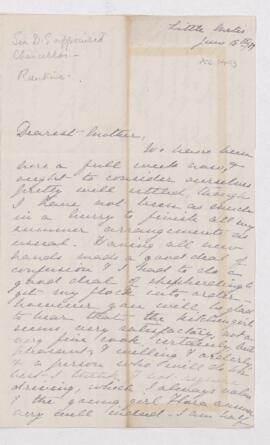 Little Metis
June 15th
Sir D. S appointed
Chancellor —
Rankine —
Dearest Mother,
We have been
here a full week now, &
ought to consider ourselves
pretty well settled, though
I have not been as much
in a hurry to finish all my
summer arrangements as
usual. Having all new
hands made a good deal of
confusion & I had to do a
good deal of shepherding to
get my flock into order —
however you will be glad
to hear that the kitchen girl
seems very satisfactory, not a
very fine cook certainly but
pleasant, & willing & orderly
& a person who will do her
best —
driving, which I always
& the young girl Flora
very well indeed — I am